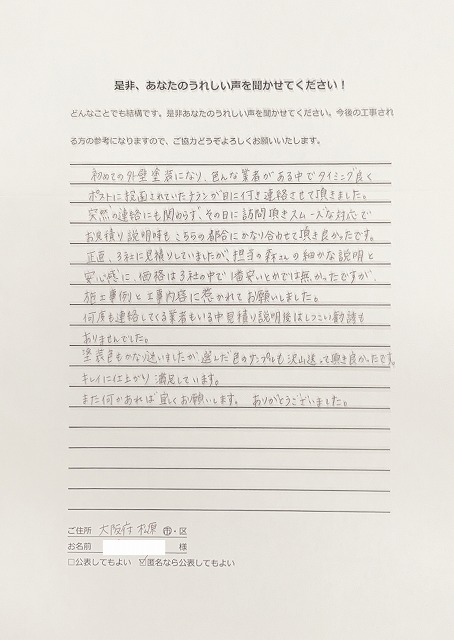 是非、あなたのうれしい声を聞かせてください！
どんなことでも結構です。是非あなたのうれしい声を聞かせてください。今後の工事され
る方の参考になりますので、ご協力どうぞよろしくお願いいたします。
初めての外壁塗装になり、色んな業者がある中でタイミング良く
ポストに投函されていたチラシが目に付き連絡させて頂きました。
突然の連絡にも関わらず、その日に訪問頂きスムーズな対応で
お見積り説明時もこちらの都合にかなり合わせて頂き良かったです。
正直、3社に見積りしていましたが、担当の森さんの細かな説明と
安心感に、価格は3社の中で1番安いとかでは無かったですが、
施工事例と工事内容に惹かれてお願いしました。
何度も連絡してくる業者もいる中見積り説明後はしつこい勧誘も
ありませんでした。
塗装色もかなり迷いましたが選んだ色のサンプルも沢山送って頂き良かったです。
キレイに仕上がり満足しています。
また何かあれば宜しくお願いします。 ありがとうございました。
ご住所 大阪府 松原 市・区
お名前 様
□公表してもよい ☑匿名なら公表してもよい